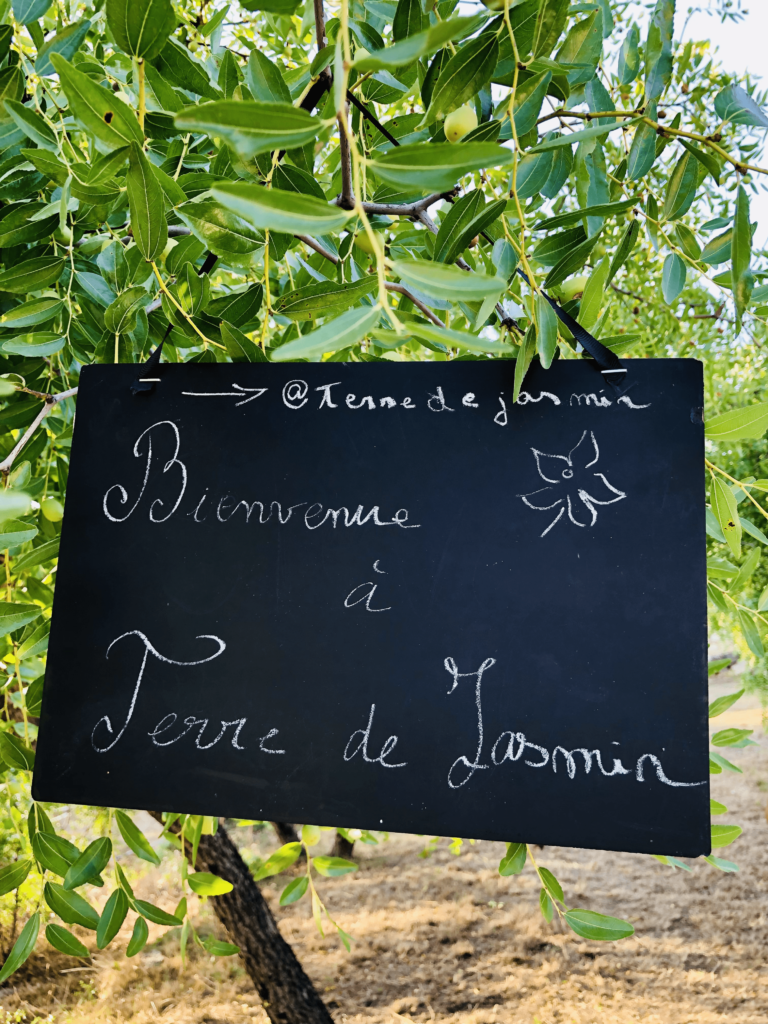 → @Terre de jasmin
Bienvenue
à
Terre de Jasmin